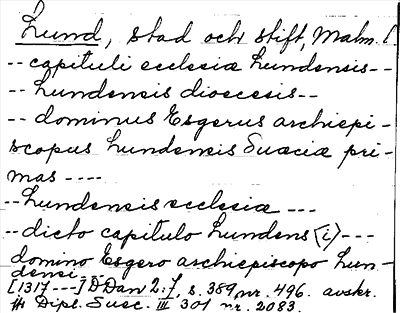 Lund, stad och stift, Malm. l.
-- capituli ecclesiæ Lundensis--
-- Lundensis diocesis--
-- dominus Esgerus archiepi-
scopus Lundensis Suæciæ pri-
mas ----
-- Lundensis ecclesia ---
-- dicto capitulo Lundens(i)---
domino Esgero archiepiscopo Lun-
densi --
[1317---] DDan 2:7, s. 389, nr. 496. avskr.
Dipl. Suec. III 301 nr. 2083.